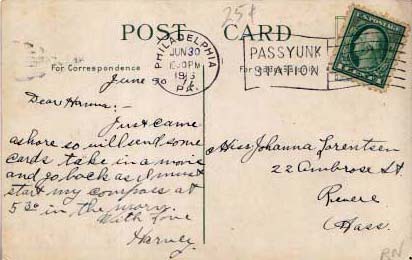 25¢
POST CARD
PHILADELPHIA
JUN 30
1916
PA.
PASSYUNK
STATION
For Correspondence
June 30
Dear Hanna:-
Just came
ashore so will send some
cards take in a movie
and go back as I must
start my compass at
5 30 in the morn.
With Love
Harvey
Miss Johanna Lorentsen
22 Ambrose St.
Revere
Mass.
RN